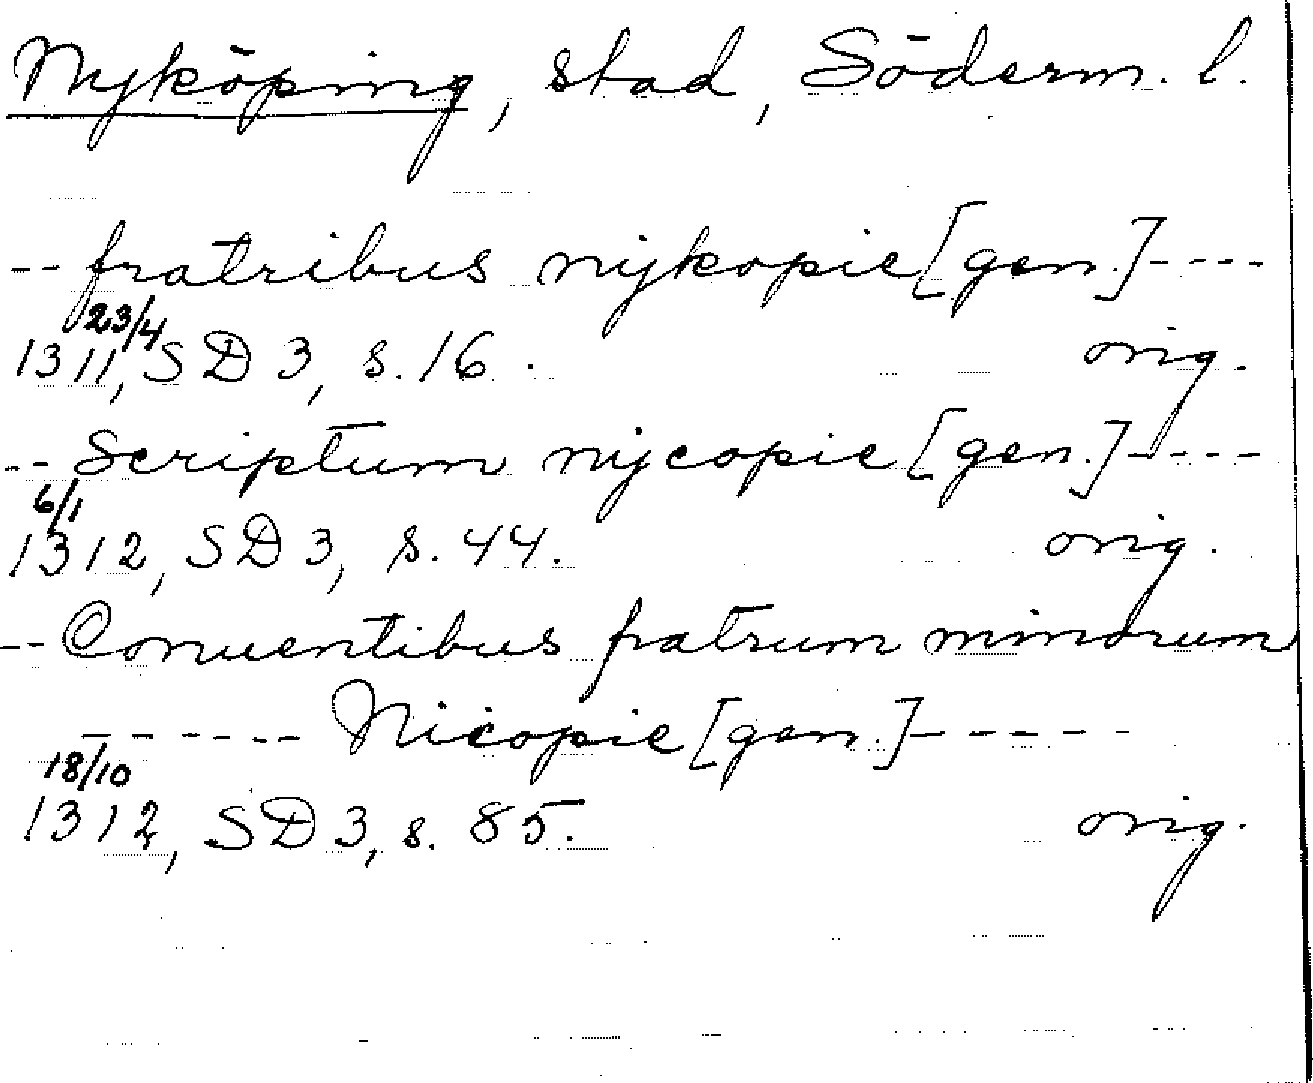 Nyköping, stad, Söderm. l.
-- fratribus nykopie [gen.] ----
23/4
1311, SD 3, s. 16. orig.
-- Scriptum nycopie [gen.] ----
6/1
1312, SD 3, s. 44. orig.
-- Conuentibus fratrum minorum
------- Nicopie [gen.] -----
18/10
1312, SD 3, s. 85. orig.